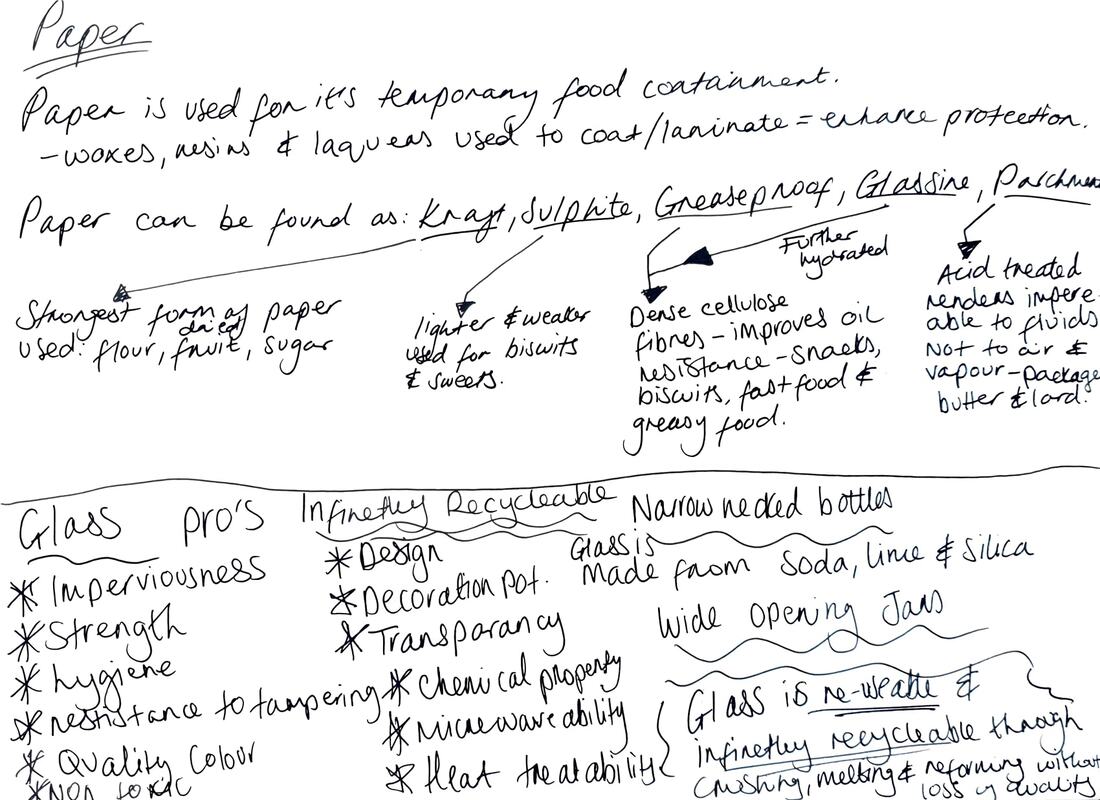 Paper
Paper is used for it's temporary food containment.
-waxes, resins & laquers used to coat/laminate = enhance protection.
Paper can be found as: Kraft, Sulphite, Greaseproof, Glassine, Parchmen
Further
hydrated
Strongest form of paper
dried
used: flour, fruit, sugar
lighter & weaker
used for biscuits
& sweets.
Dense cellulose
fibres - improves oil
resistance - snacks,
biscuits, fast food &
greasy food.
Acid treated
renders impere
able to fluids
Not to air &
vapour - package
butter & lard.
Glass pro's
* Imperviousness
* Strength
* hygiene
* restistance to tampering
* Quality Colour
* Non toxic
Infinetley Recycleable
* Design
* Decoration Pot.
* Transparancy
* Chemical property
* Microwaveability
* Heat treatability
Narrow necked bottles
Glass is
made from Soda, lime & Silica
Wide opening Jars
Glass is re-useable &
infinetley recycleable through
Crushing, melting & reforming without
loss of quality